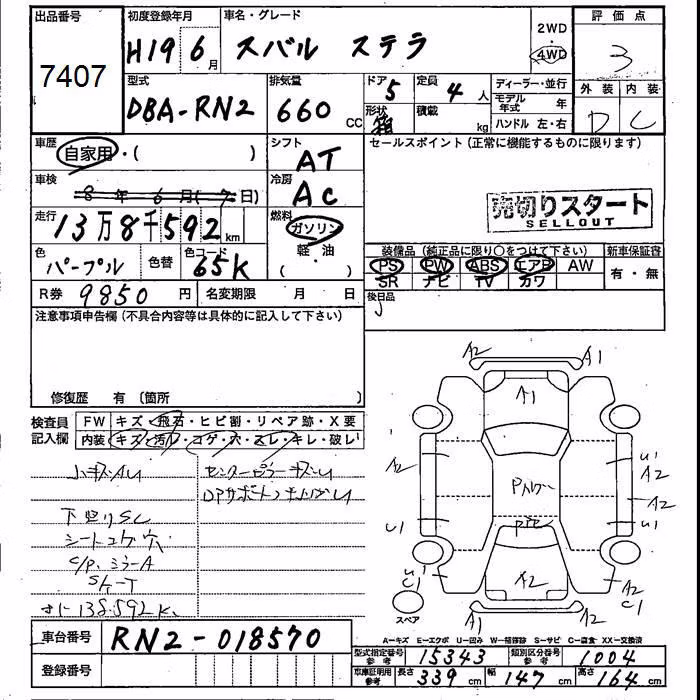 出品番号 初度登録年月 車名・グレード 2WD 評価点
7407 H19 6月 スバル ステラ 4WD 3
型式 排気量 ドア 5 定員 4人 ディーラー・並行 外装 内装
DBA-RN2 660 CC 形状 箱 積載 kg モデル年式 年 D C
ハンドル 左・右
車歴 自家用・( ) シフト AT セールスポイント (正常に機能するものに限ります)
車検 8年 6月( 日) 冷房 AC
売切りスタート
SELLOUT
走行 13万8千592km 燃料 ガソリン
軽・油
( )
色 パープル 色替 色コード 65K
装備品 (純正品に限り○をつけて下さい) 新車保証書
PS PW ABS エアB AW 有・無
SR ナビ TV カワ
R券 9850円 名変期限 月 日 後日品
注意事項申告欄 (不具合内容等は具体的に記入して下さい)
修復歴 有 〔箇所 〕
A2 A1
A1
検査員 FW キズ・飛石・ヒビ割・リペア跡・X要
記入欄 内装 キズ・汚レ・コゲ・穴・スレ・キレ・破レ
小キズAU
A2 U1 A2
A2
下廻りSC
U1 P1E U1
シートコゲ穴
C/P、ミラーA
A2 A2 C1
C1
スペア
A1 A2
A=キズ E=エクボ U=凹み W=補修跡 S=サビ C=腐食 XX=交換済
車台番号 RN2-018570
型式指定番号 参考 15343 類別区分番号 参考 1004
登録番号
車庫証明用 参考 長さ 339cm 幅 147cm 高さ 164cm